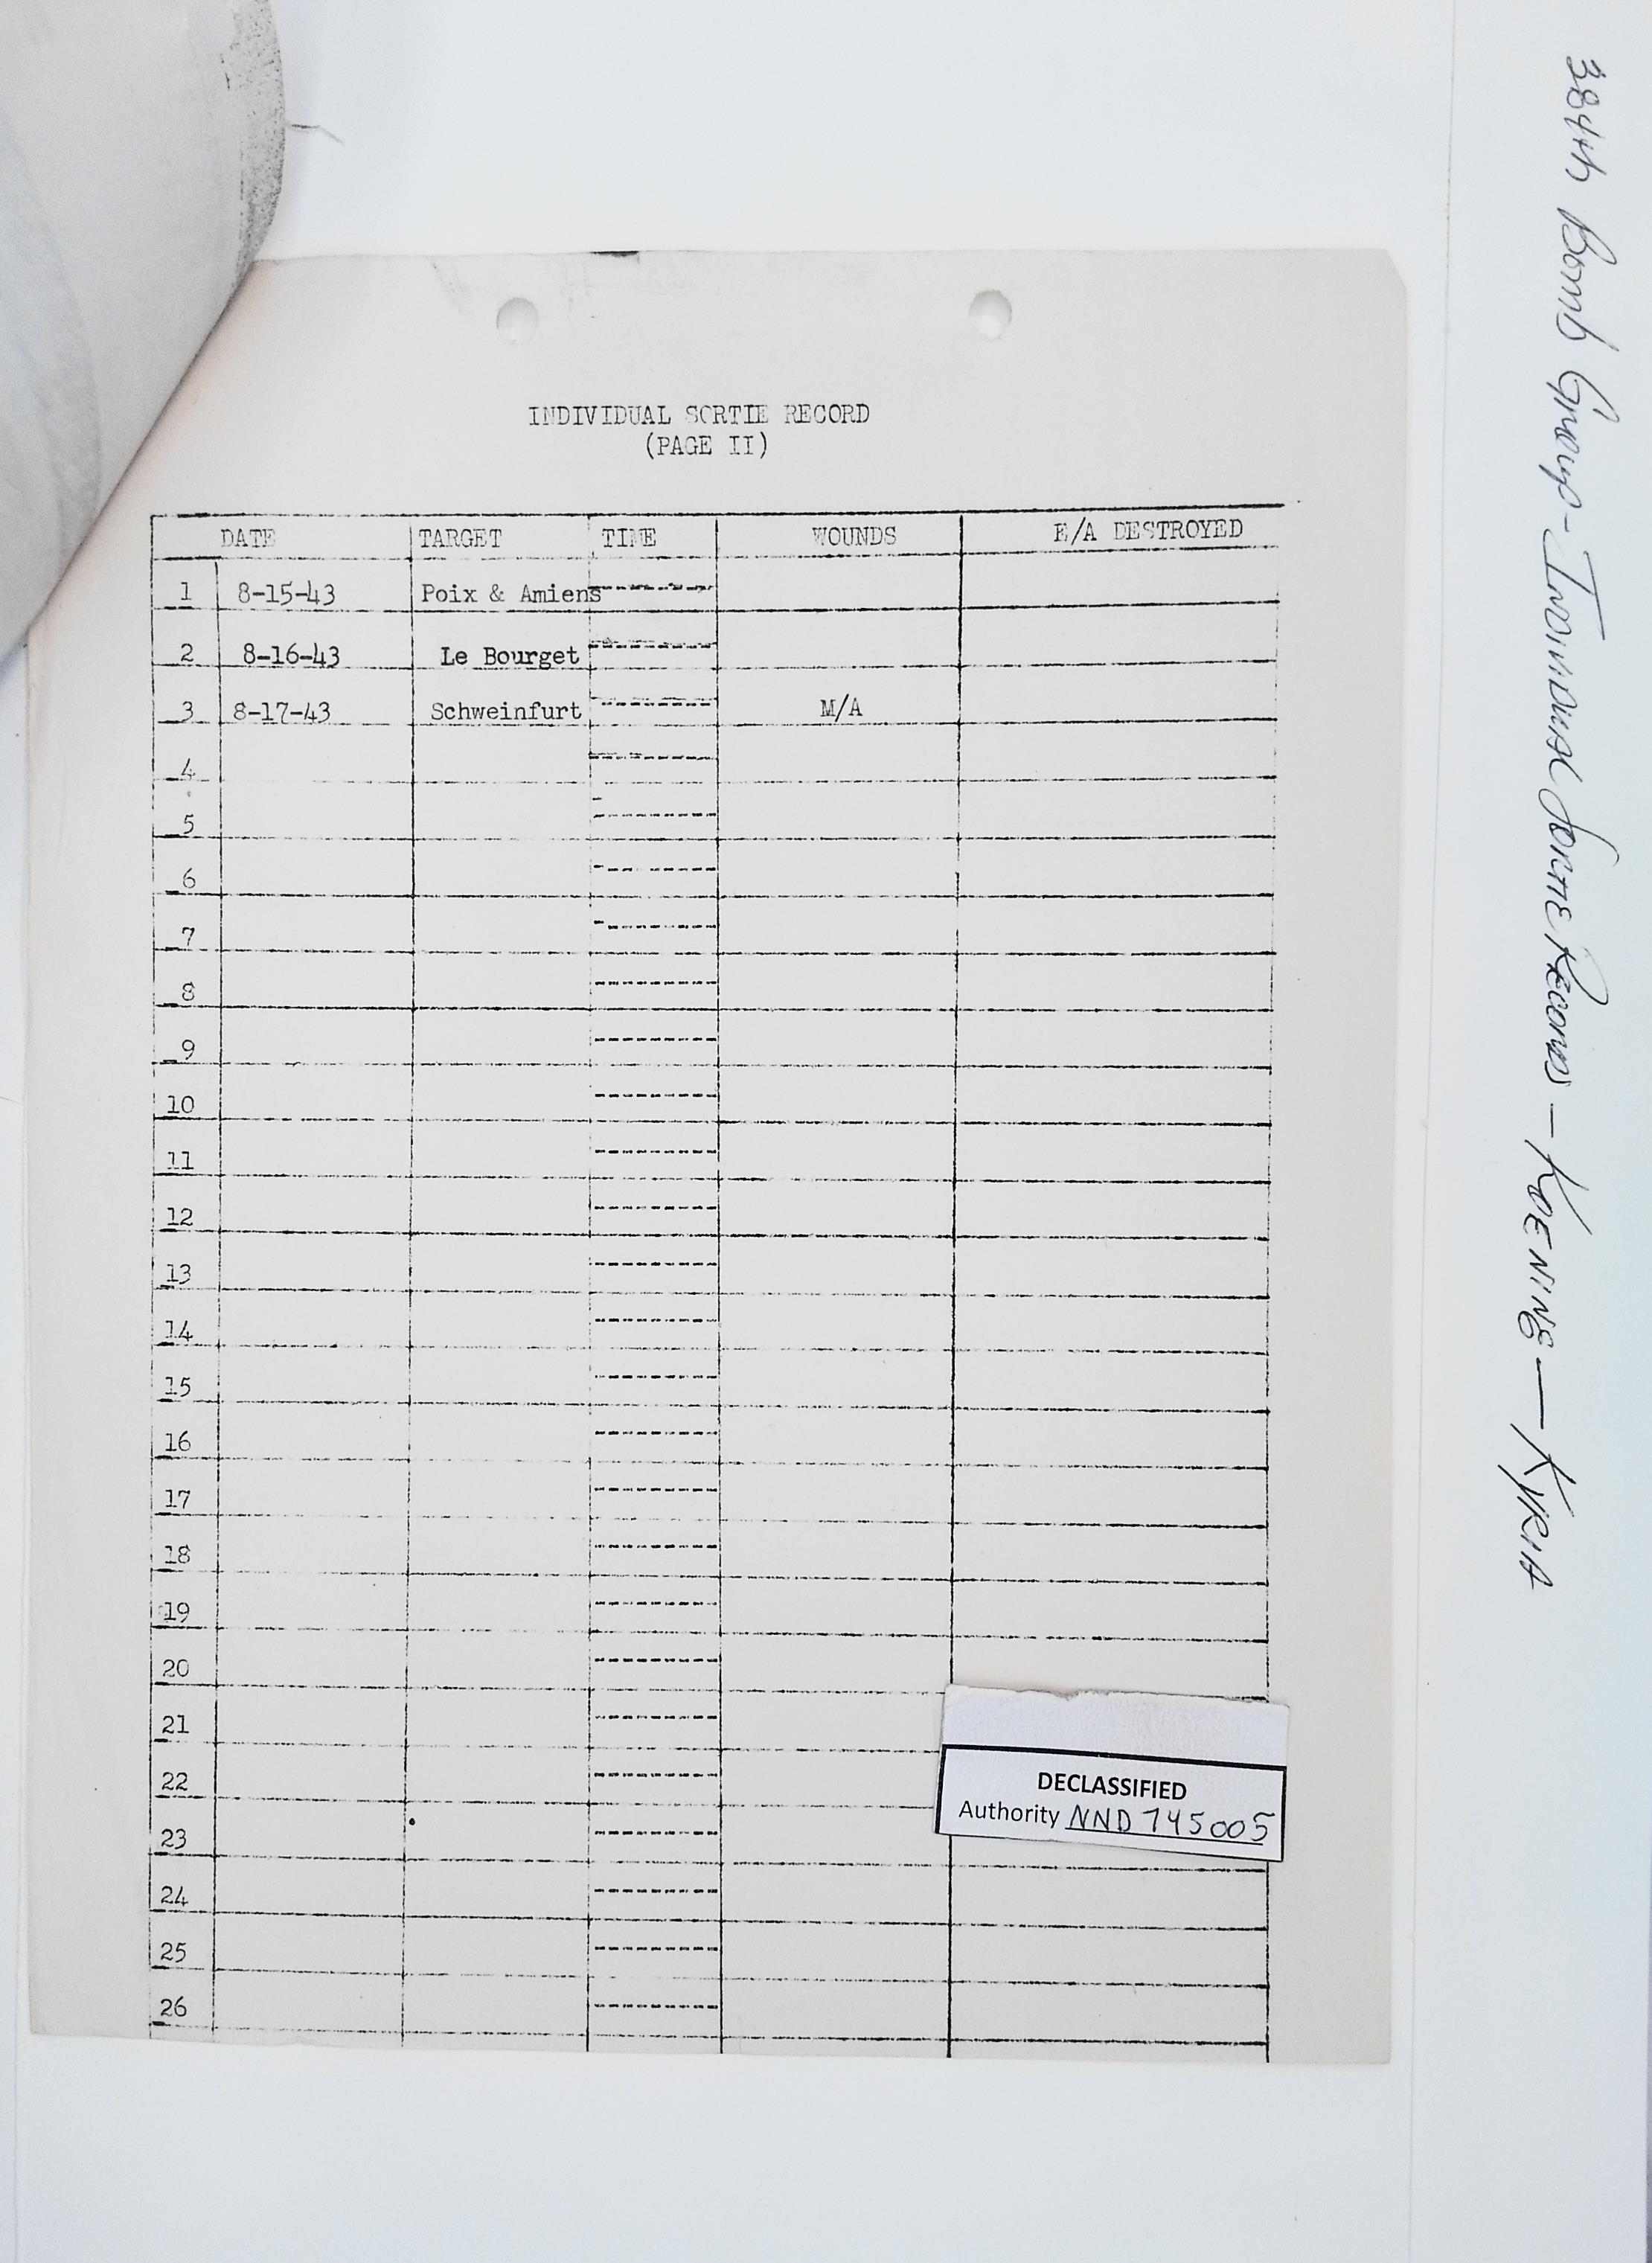 INDIVIDUAL SORTIE RECORD
(PAGE II)
DATE TARGET TIME WOUNDS E/A DESTROYED
1 8-15-43 Poix & Amiens
2 8-16-43 Le Bourget
3 8-17-43 Schweinfurt M/A
4
5
6
7
8
9
10
11
12
13
14
15
16
17
18
19
20
21
22
23
24
25
26
DECLASSIFIED
Authority NND 745005
384th Bomb Group - Individual Sortie Records - KOENING - KYRIA